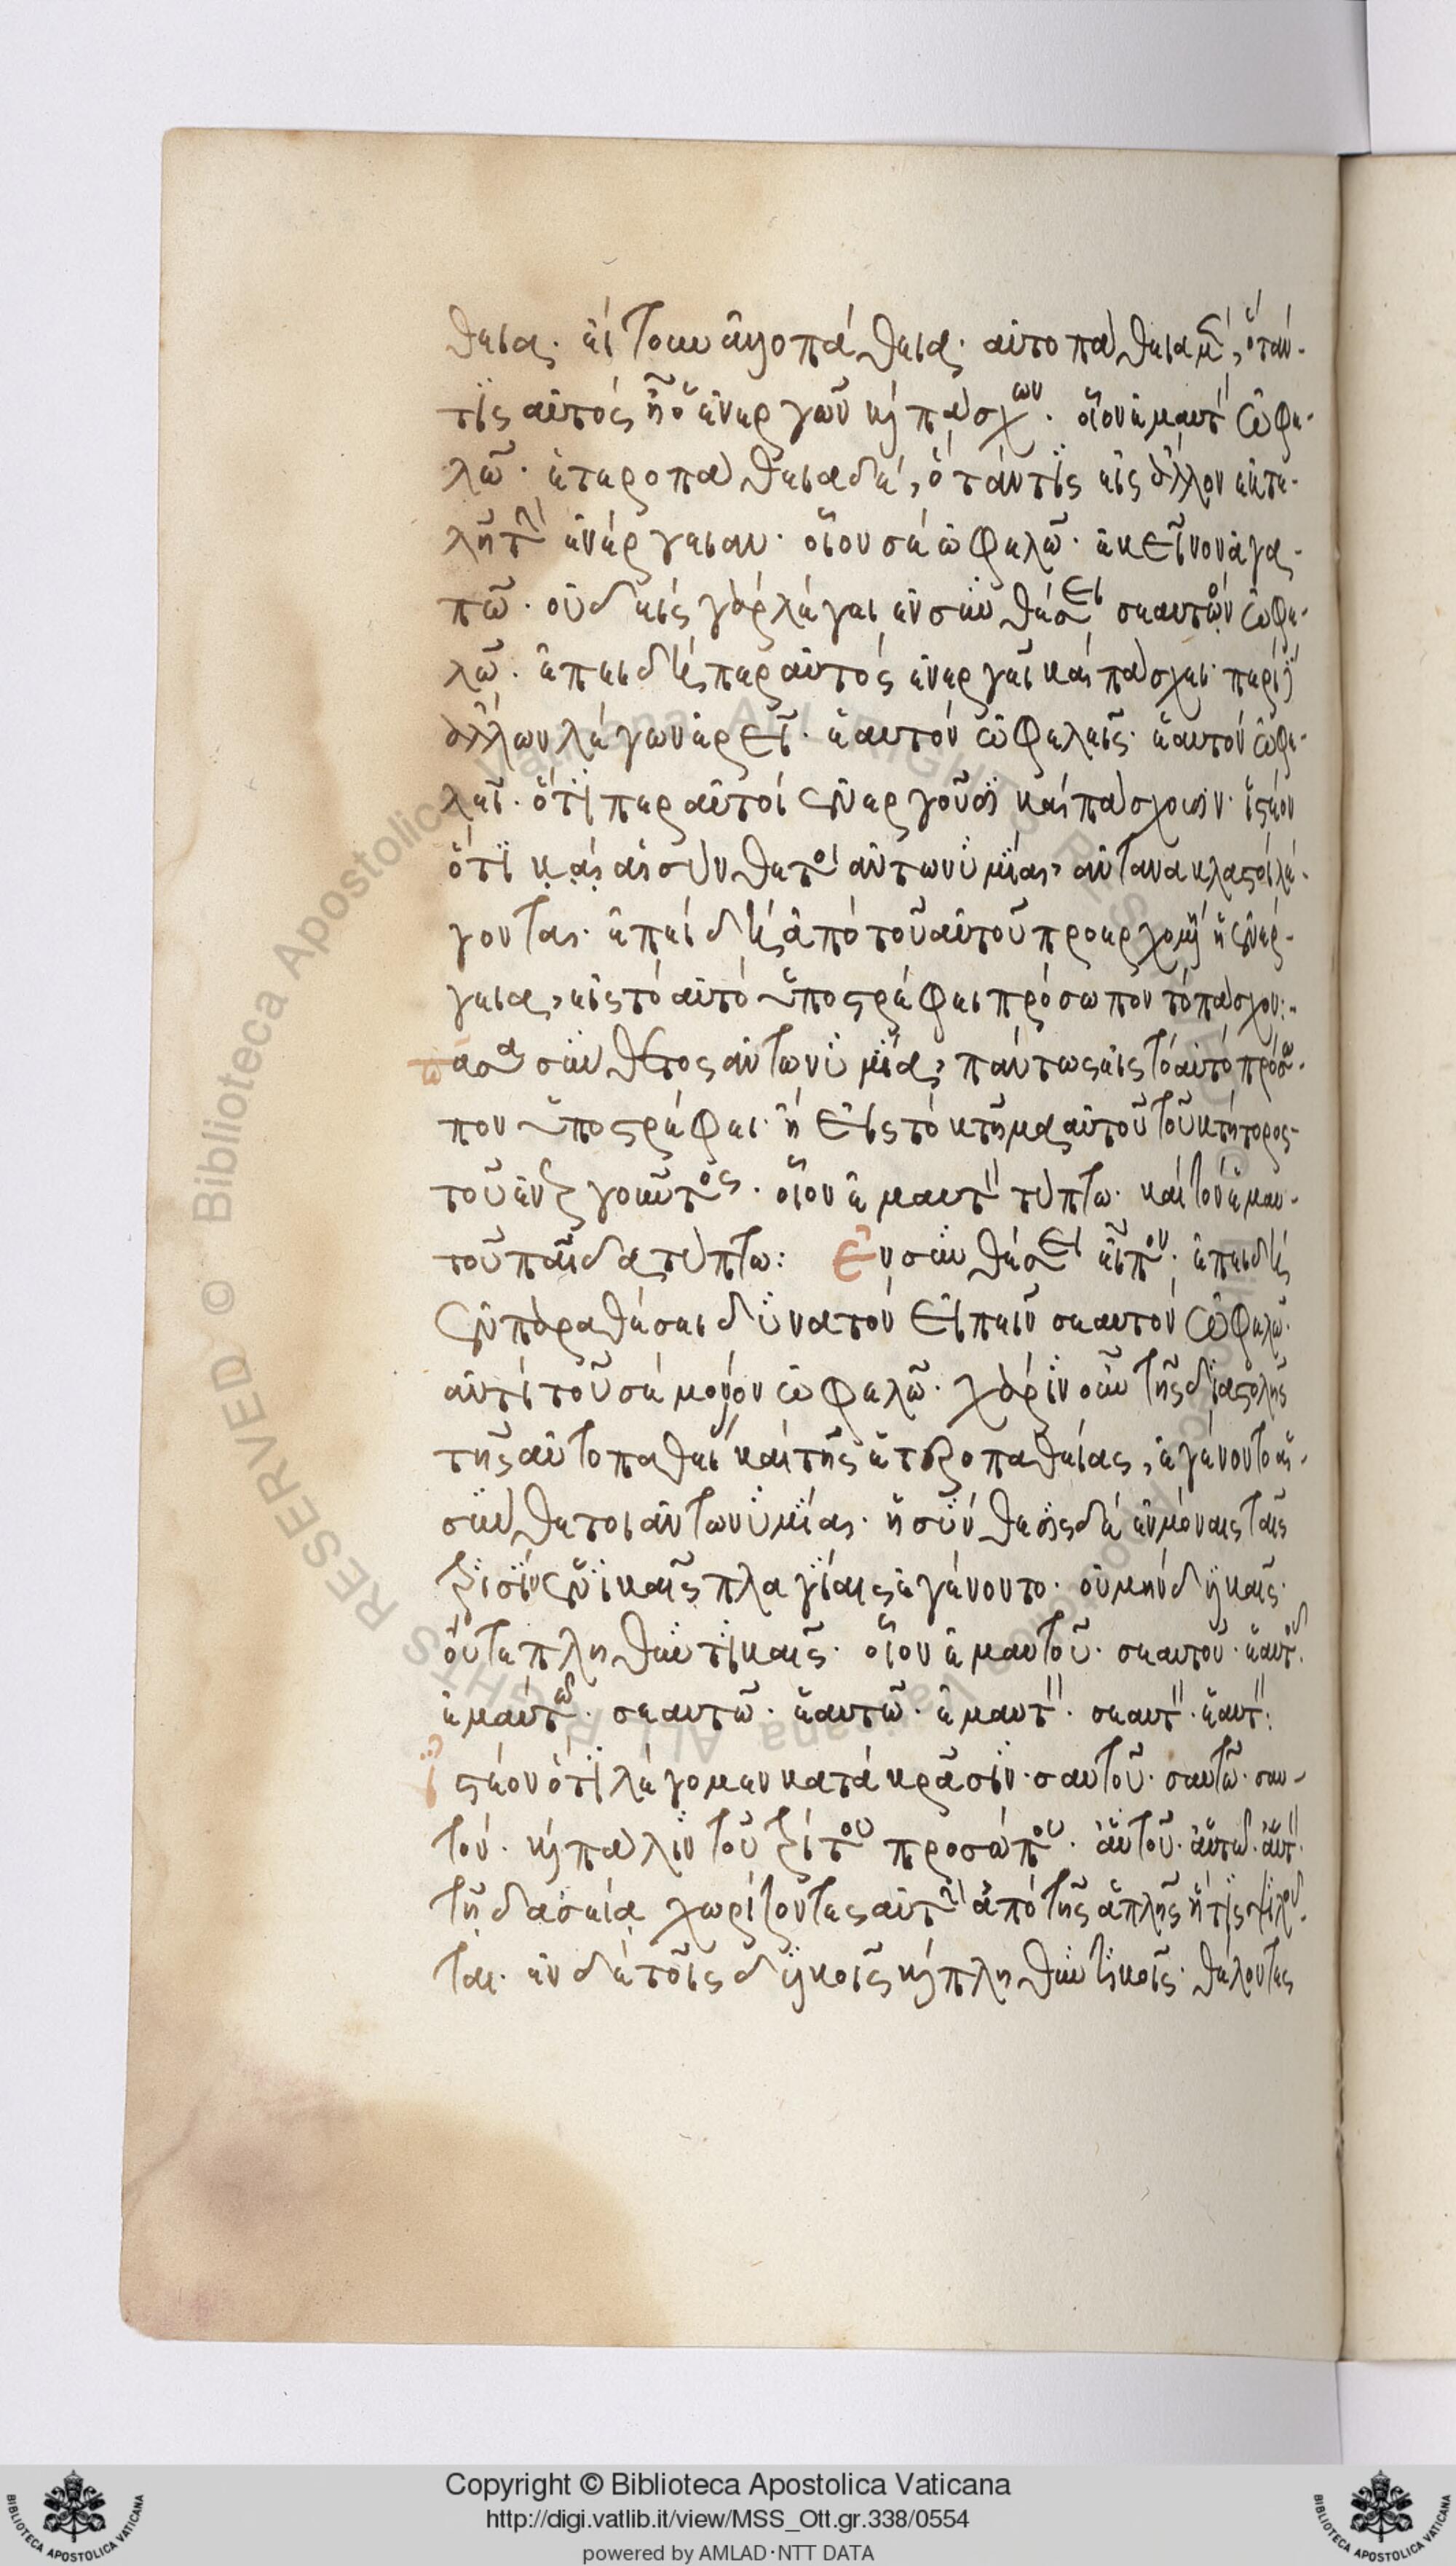 θεια. εἴτουν ἀλλοπάθεια. αὐτοπάθεια μὲν, ὅταν
τὶς αὐτὸς ᾖ ὁ ἐνεργῶν καὶ πάσχων. οἷον ἐμαυτὸν ὠφε-
λῶ. ἑτεροπάθεια δὲ, ὅταν τὶς εἰς ἄλλον ἐκτε-
λῆ τὴν ἐνέργειαν. οἷον σὲ ὠφελῶ. ἐκεῖνον ἀγα-
πῶ. οὐδεὶς γὰρ λέγει ἐν συνθέσει σεαυτὸν ὠφε-
λῶ. ἐπειδήπερ αὐτὸς ἐνεργεῖ καὶ πάσχει. περὶ
ἄλλων λέγων ἐρεῖ. ἑαυτὸν ὠφελεῖς. ἑαυτὸν ὠφε-
λεῖ. ὅτιπερ αὐτοὶ ἐνεργοῦσι καὶ πάσχουσιν. ἰστέον
ὅτι καὶ αἱ σύνθετοι ἀντωνυμίαι, ἀντανακλασταὶ λέ-
γονται. ἐπειδὴ ἀπὸ τοῦ αὐτοῦ προερχομένη ἡ ἐνέρ-
γεια, εἰς τὸ αὐτὸ ὑποστρέφει πρόσωπον τὸ πάσχον:
πᾶσα σύνθετος ἀντωνυμία, πάντως εἰς τὸ αὐτὸ πρόσω-
πον ὑποστρέφει. ἢ εἰς τὸ κτῆμα αὐτοῦ τοῦ κτήτορος
τοῦ ἐνεργοῦντος. οἷον ἐμαυτὸν τύπτω. καὶ τὸν ἐμαυ-
τοῦ παῖδα τύπτω: Ἐν συνθέσει εἶπον. ἐπειδὴ
ἐν παραθέσει δυνατὸν εἰπεῖν σεαυτὸν ὠφελῶ.
ἀντὶ τοῦ σὲ μόνον ὠφελῶ. χάριν οὖν τῆς διαστολῆς
τῆς αὐτοπαθείας καὶ τῆς ἑτεροπαθείας, ἐγένοντο αἱ
σύνθετοι ἀντωνυμίαι. ἡ σύνθεσις δὲ ἐν μόναις ταῖς
τρισὶν ἑνικαῖς πλαγίαις ἐγένοντο. οὐ μὴν δυικαῖς.
οὔτε πληθυντικαῖς. οἷον ἐμαυτοῦ. σεαυτοῦ. ἑαυτοῦ.
ἐμαυτῶ. σεαυτῶ. ἑαυτῶ. ἐμαυτὸν. σεαυτὸν. ἑαυτὸν:
ἰστέον ὅτι λέγομεν κατὰ κρᾶσιν. σαυτοῦ. σαυτῶ. σαυ-
τόν. καὶ πάλιν τοῦ τρίτου προσώπου. αὑτοῦ. αὑτῶ. αὑτὸν.
τῇ δασείᾳ χωρίζοντες αὐτὴν ἀπὸ τῆς ἁπλῆς ἥτις ψιλοῦ-
ται. ἐν δὲ τοῖς δυικοῖς καὶ πληθυντικοῖς. θέλοντες
Copyright © Biblioteca Apostolica Vaticana
http://digi.vatlib.it/view/MSS_Ott.gr.338/0554
powered by AMLAD·NTT DATA